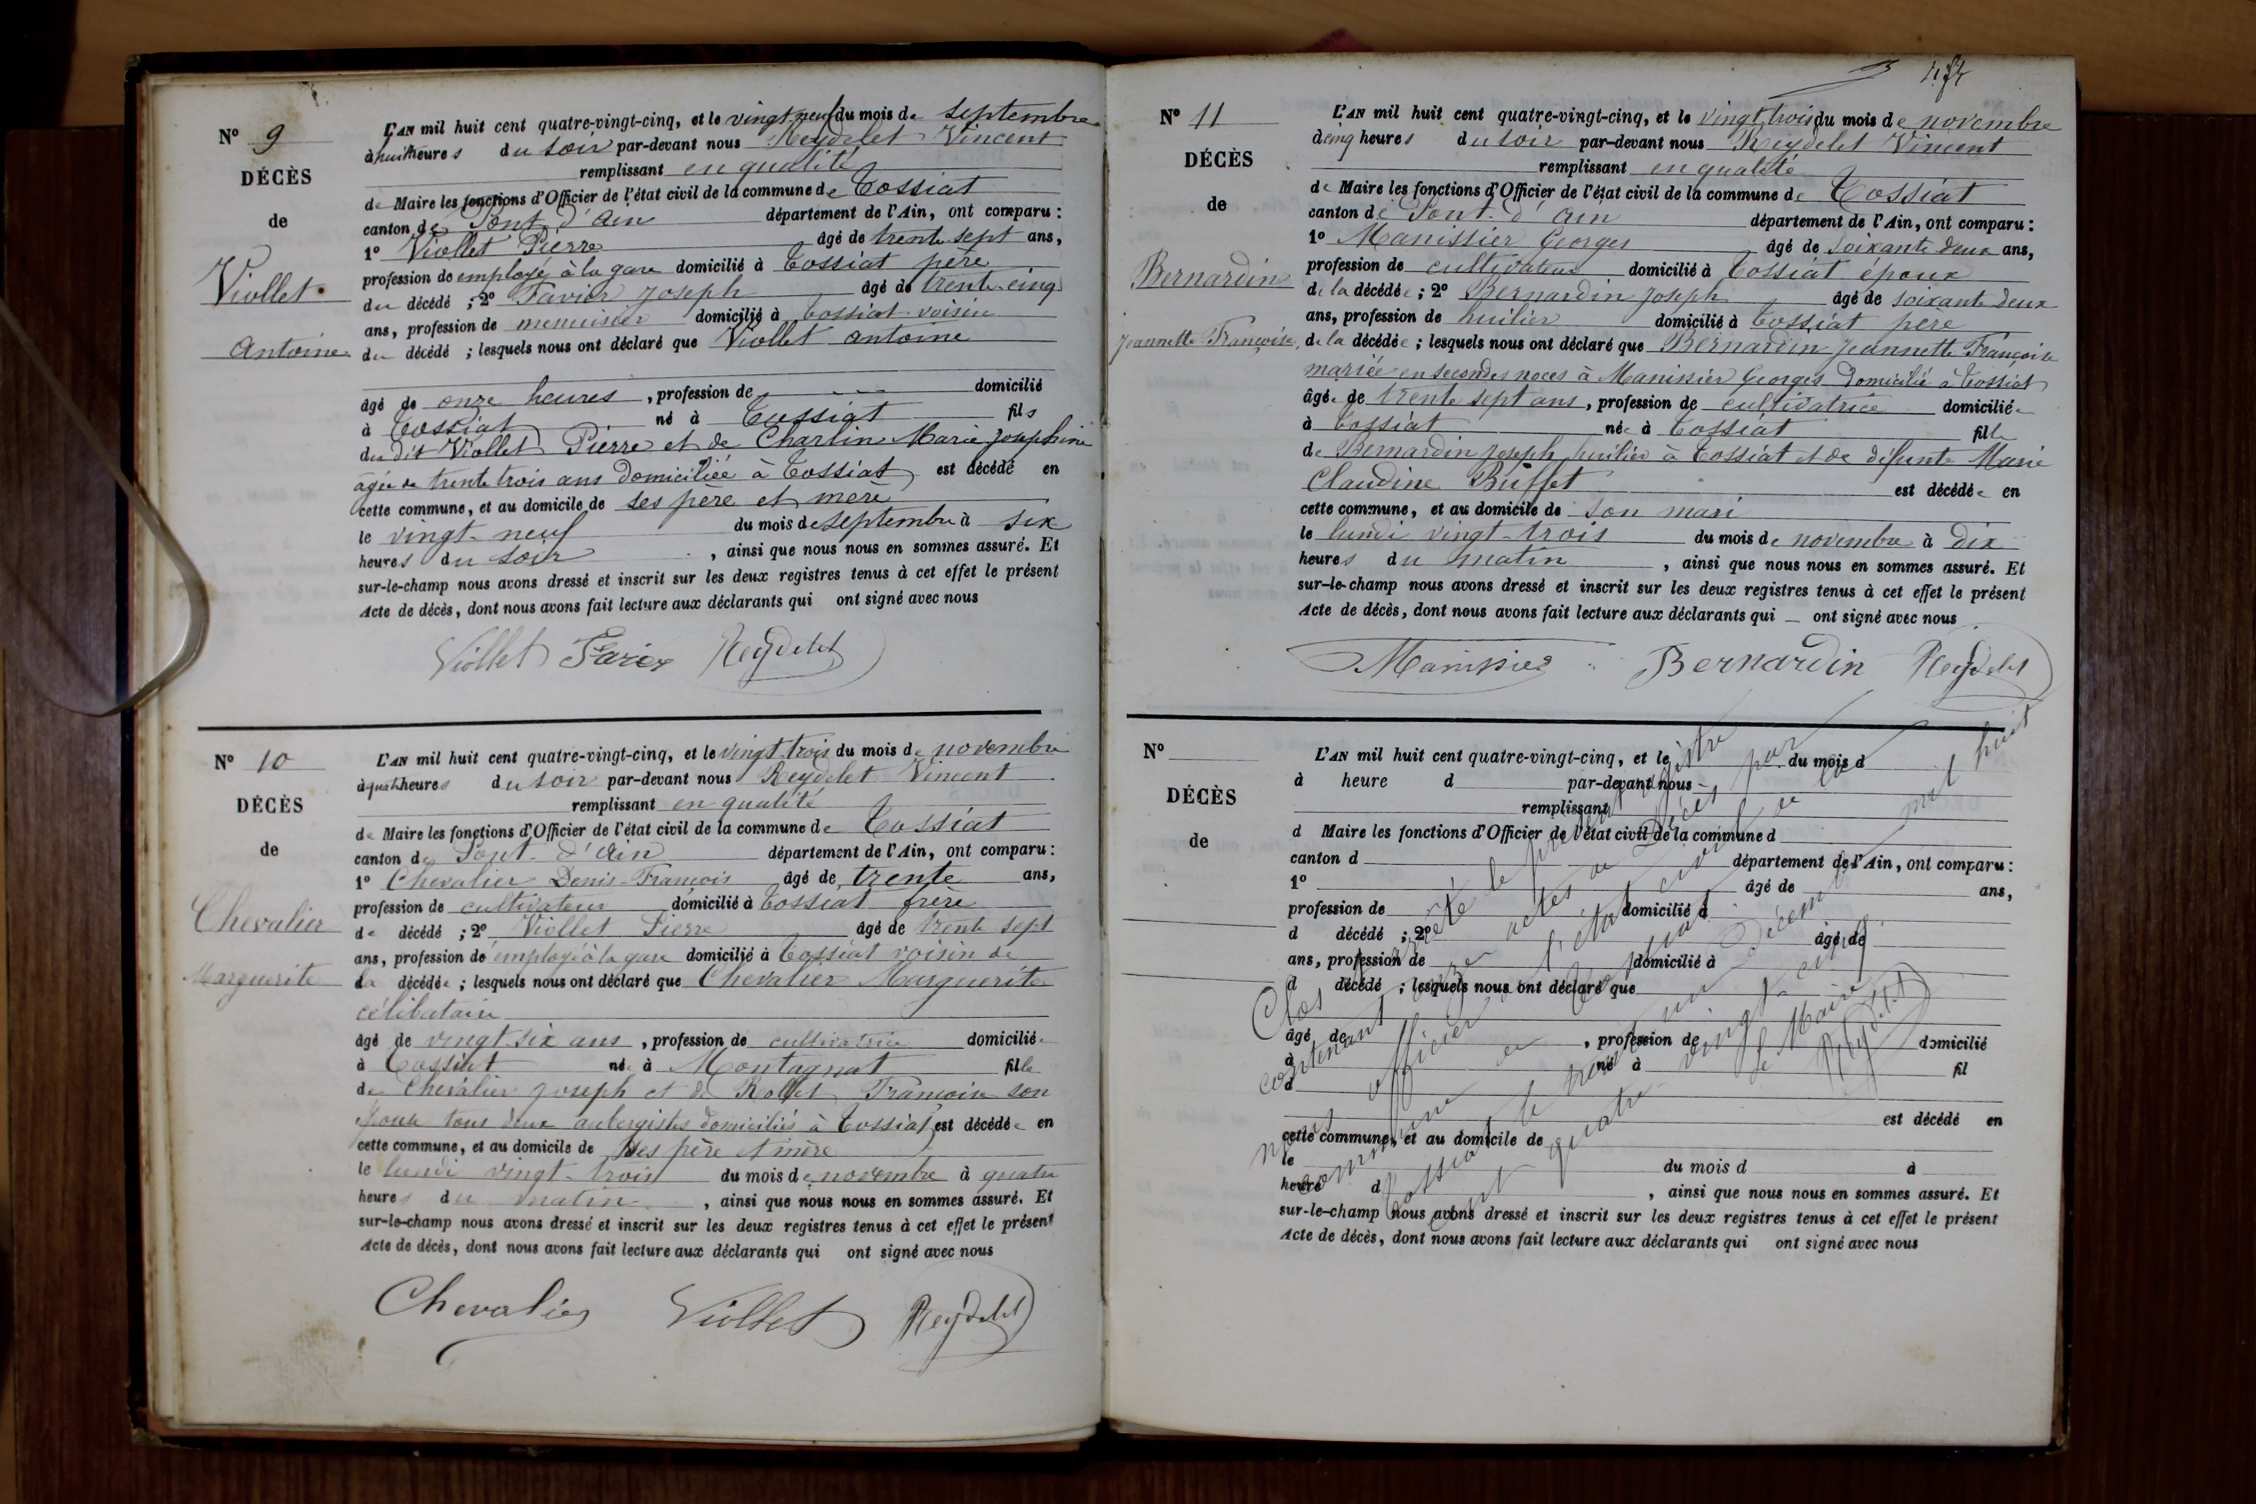 N° 9
DÉCÈS
de
Viollet
Antoine
L'AN mil huit cent quatre-vingt-cinq, et le vingt neuf du mois de septembre
à huit heures du soir par-devant nous Reydelet Vincent
remplissant en qualité
de Maire les fonctions d'Officier de l'état civil de la commune de Tossiat
canton de Pont d'ain département de l'Ain, ont comparu :
1° Viollet Pierre âgé de trente sept ans,
profession de employé à la gare domicilié à Tossiat père
du décédé ; 2° Favier Joseph âgé de trente cinq
ans, profession de menuisier domicilié à Tossiat voisin
du décédé ; lesquels nous ont déclaré que Viollet antoine
âgé de onze heures , profession de domicilié
à Tossiat né à Tossiat fils
du dit Viollet Pierre et de Charlin Marie Josephine
agée de trente trois ans domiciliée à Tossiat est décédé en
cette commune, et au domicile de ses père et mère
le vingt-neuf du mois de septembre à six
heures du soir , ainsi que nous nous en sommes assuré. Et
sur-le-champ nous avons dressé et inscrit sur les deux registres tenus à cet effet le présent
Acte de décès, dont nous avons fait lecture aux déclarants qui ont signé avec nous
Viollet Favier Reydelet
N° 10
DÉCÈS
de
Chevalier
Marguerite
L'AN mil huit cent quatre-vingt-cinq, et le vingt trois du mois de novembre
à quatre heures du soir par-devant nous Reydelet Vincent
remplissant en qualité
de Maire les fonctions d'Officier de l'état civil de la commune de Tossiat
canton de Pont-d'Ain département de l'Ain, ont comparu :
1° Chevalier Denis-François âgé de trente ans,
profession de cultivateur domicilié à Tossiat frère
de décédé ; 2° Viollet Pierre âgé de trente sept
ans, profession de employé à la gare domicilié à Tossiat voisin de
la décédée ; lesquels nous ont déclaré que Chevalier Marguerite
célibataire
âgé de vingt-six ans , profession de cultivatrice domiciliée
à Tossiat née à Montagnat fille
de Chevalier Joseph et de Rollet Françoise son
épouse tous deux aubergistes domiciliés à Tossiat est décédée en
cette commune, et au domicile de ses père et mère
le lundi vingt-trois du mois de novembre à quatre
heures du matin , ainsi que nous nous en sommes assuré. Et
sur-le-champ nous avons dressé et inscrit sur les deux registres tenus à cet effet le présent
Acte de décès, dont nous avons fait lecture aux déclarants qui ont signé avec nous
Chevalier Viollet Reydelet
N° 11
DÉCÈS
de
Bernardin
Jeannette Françoise,
L'AN mil huit cent quatre-vingt-cinq, et le vingt trois du mois de novembre
à cinq heures du soir par-devant nous Reydelet Vincent
remplissant en qualité
de Maire les fonctions d'Officier de l'état civil de la commune de Tossiat
canton de Pont-d'ain département de l'Ain, ont comparu :
1° Manissier Georges âgé de soixante deux ans,
profession de cultivateur domicilié à Tossiat époux
de la décédée ; 2° Bernardin Joseph âgé de soixante deux
ans, profession de huilier domicilié à Tossiat père
de la décédée ; lesquels nous ont déclaré que Bernardin Jeannette Françoise
mariée en secondes noces à Manissier Georges domicilié à Tossiat
âgée de trente sept ans , profession de cultivatrice domiciliée
à Tossiat née à Tossiat fille
de Bernardin Joseph huilier à Tossiat et de défunte Marie
Claudine Buffet est décédée en
cette commune, et au domicile de son mari
le lundi vingt-trois du mois de novembre à dix
heures du matin , ainsi que nous nous en sommes assuré. Et
sur-le-champ nous avons dressé et inscrit sur les deux registres tenus à cet effet le présent
Acte de décès, dont nous avons fait lecture aux déclarants qui ont signé avec nous
Manissier Bernardin Reydelet
N°
DÉCÈS
de
L'AN mil huit cent quatre-vingt-cinq, et le du mois d
à heure d par-devant nous
remplissant
d Maire les fonctions d'Officier de l'état civil de la commune d
canton d département de l'Ain, ont comparu :
1° âgé de ans,
profession de domicilié à
d décédé ; 2° âgé de
ans, profession de domicilié à
d décédé ; lesquels nous ont déclaré que
âgé de , profession de domicilié
à né à fil
d
est décédé en
cette commune, et au domicile de
le du mois d à
heure d , ainsi que nous nous en sommes assuré. Et
sur-le-champ nous avons dressé et inscrit sur les deux registres tenus à cet effet le présent
Acte de décès, dont nous avons fait lecture aux déclarants qui ont signé avec nous
Clos et arrêté le présent registre
contenant onze actes de décès par
nous officier de l'état civil de la
commune de Tossiat
Tossiat le trente un décembre mil huit
cent quatre vingt-cinq.
le Maire
Reydelet